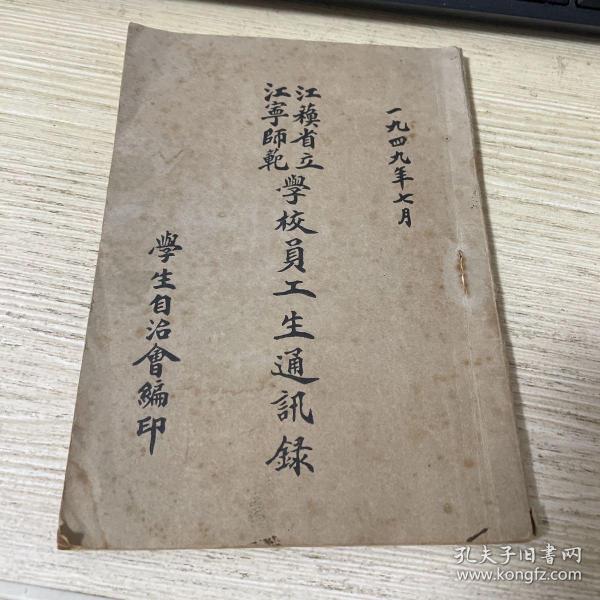 一九四九年七月
江蘓省立
江寧師範
學校員工生通訊錄
學生自治會編印
孔夫子旧書网
www.kongfz.com